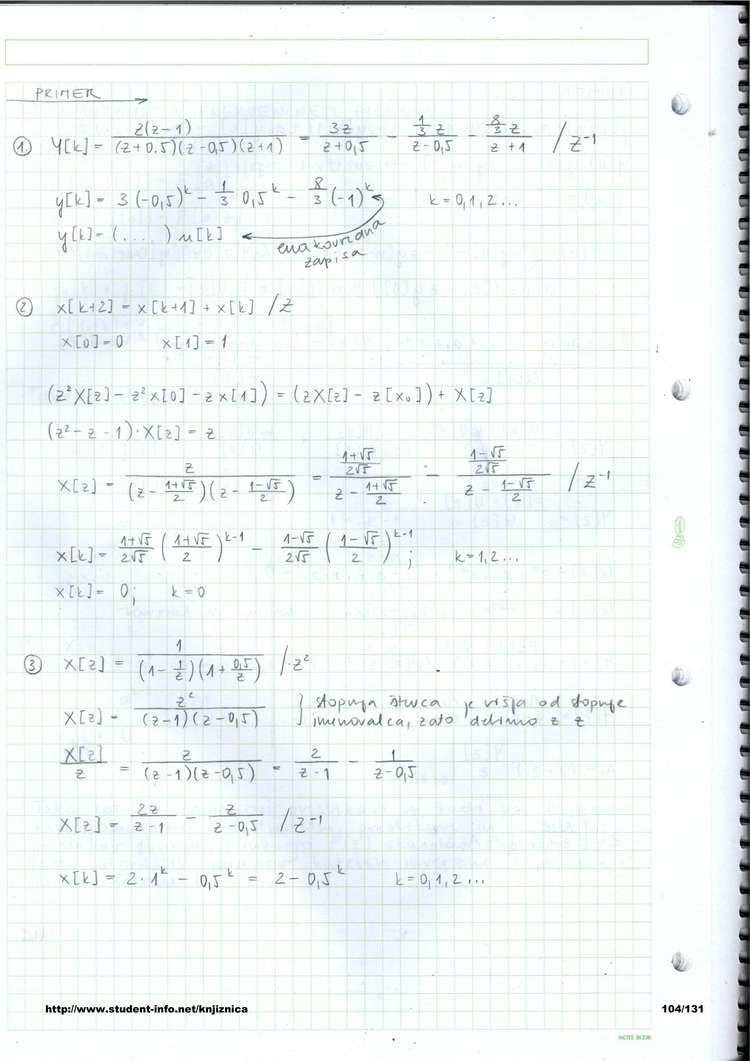 PRIMER
1. Y[k] = z(z-1) / (z+0.5)(z-0,5)(z+1) = 3z / z+0,5 - 1/3 z / z-0,5 - 8/3 z / z+1 /Z⁻¹
y[k] = 3(-0,5)ᵏ - 1/3 0,5ᵏ - 8/3 (-1)ᵏ k=0,1,2...
y[k] = (....) u[k] enakovredna
zapisa
2 x[k+2] = x[k+1] + x[k] /Z
x[0]=0 x[1]=1
(z²X[z] - z²x[0] - zx[1]) = (zX[z] - z[x₀]) + X[z]
(z²-z-1)·X[z] = z
X[z] = z / (z - 1+√5/2)(z - 1-√5/2) = 1+√5/2√5 / z - 1+√5/2 - 1-√5/2√5 / z - 1-√5/2 /Z⁻¹
x[k] = 1+√5/2√5 (1+√5/2)ᵏ⁻¹ - 1-√5/2√5 (1-√5/2)ᵏ⁻¹; k=1,2...
x[k] = 0; k=0
3 X[z] = 1 / (1-1/z)(1+0,5/z) /·z²
X[z] = z² / (z-1)(z-0,5) } stopnja števca je višja od stopnje
imenovalca, zato delimo z z
X[z]/z = z / (z-1)(z-0,5) = 2 / z-1 - 1 / z-0,5
X[z] = 2z / z-1 - z / z-0,5 /Z⁻¹
x[k] = 2·1ᵏ - 0,5ᵏ = 2 - 0,5ᵏ k=0,1,2...
http://www.student-info.net/knjiznica 104/131
NOTE BOOK